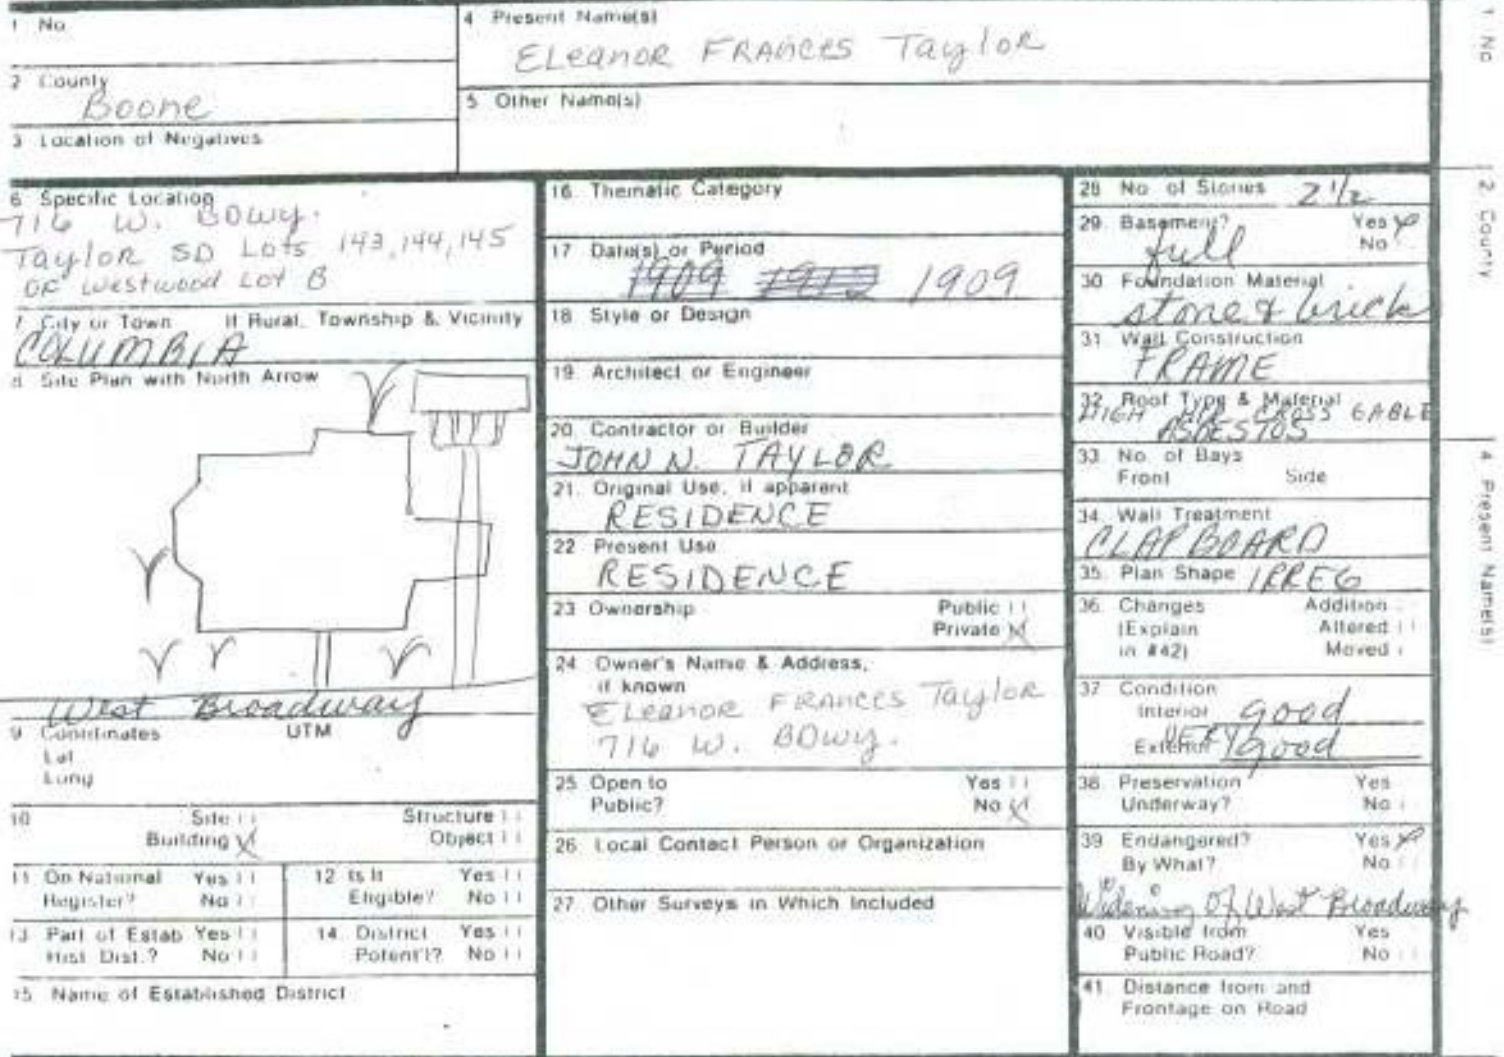 1 No.
4 Present Name(s)
ELeanoR FRAnces TayloR
2 County
Boone
5 Other Name(s)
3 Location of Negatives
6 Specific Location
716 W. BDwy.
TayloR SD Lots 143,144,145
OF Westwood Lot B
7 City or Town If Rural, Township & Vicinity
COLUMBIA
8 Site Plan with North Arrow
West Broadway
9 Coordinates UTM
Lat
Long
10 Site Structure
Building Object
11 On National Register? Yes No
12 Is It Eligible? Yes No
13 Part of Estab Hist Dist.? Yes No
14 District Potent'l? Yes No
15 Name of Established District
16. Thematic Category
17 Date(s) or Period
1909 1912 1909
18. Style or Design
19. Architect or Engineer
20. Contractor or Builder
JOHN N. TAYLOR
21. Original Use, if apparent
RESIDENCE
22 Present Use
RESIDENCE
23 Ownership Public
Private
24 Owner's Name & Address,
if known
ELeanoR FRAnces TayloR
716 W. BDwy.
25 Open to Yes
Public? No
26 Local Contact Person or Organization
27. Other Surveys in Which Included
28 No. of Stories 2 1/2
29. Basement? Yes
full No
30. Foundation Material
stone & brick
31. Wall Construction
FRAME
32. Roof Type & Material
HIGH HIP CROSS GABLE
ASBESTOS
33. No. of Bays
Front Side
34. Wall Treatment
CLAPBOARD
35. Plan Shape IRREG
36. Changes Addition
(Explain Altered
in #42) Moved
37 Condition
Interior good
Exterior VERY good
38. Preservation Yes
Underway? No
39 Endangered? Yes
By What? No
Widening Of West Broadway
40. Visible from Yes
Public Road? No
41. Distance from and
Frontage on Road
1 No
2 County
4 Present Name(s)